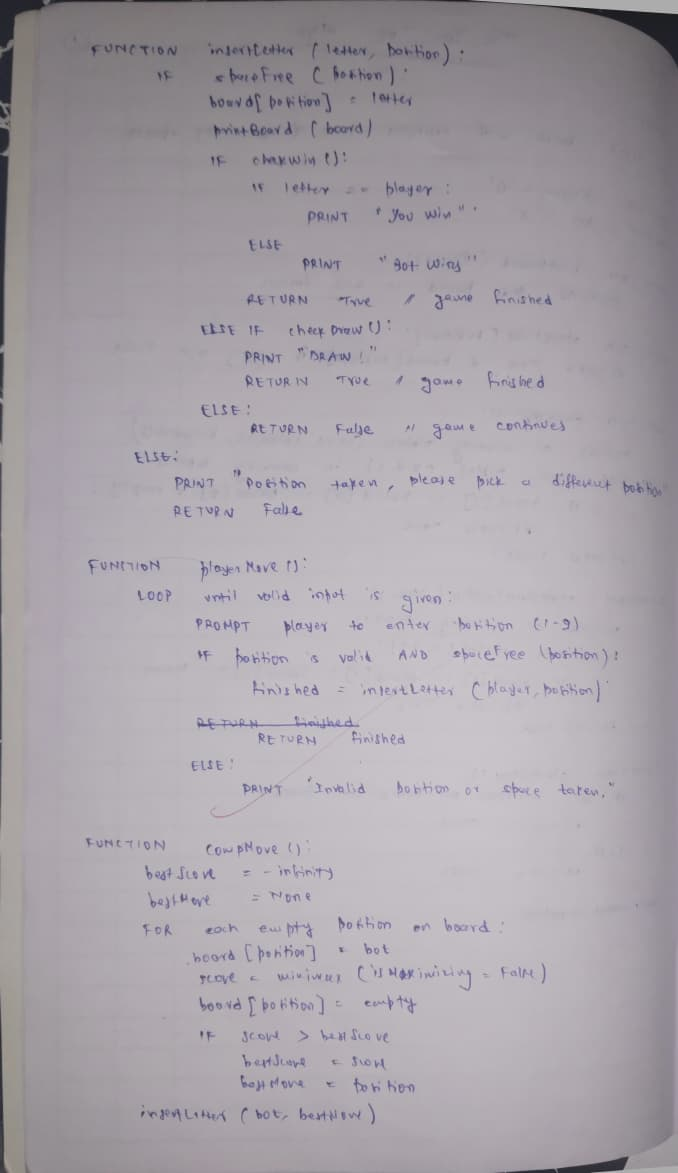 FUNCTION insertLetter (letter, position) :
IF spaceFree (position) :
board[position] = letter
printBoard (board)
IF checkWin () :
IF letter == player :
PRINT "You win"
ELSE
PRINT "Bot wins"
RETURN True // game finished
ELSE IF check Draw () :
PRINT "DRAW !"
RETURN TRUE // game finished
ELSE :
RETURN False // game continues
ELSE :
PRINT "Position taken, please pick a different position"
RETURN False
FUNCTION playerMove () :
LOOP until valid input is given :
PROMPT player to enter position (1-9)
IF position is valid AND spaceFree (position) :
finished = insertLetter (player, position)
RETURN finished
RETURN finished
ELSE :
PRINT "Invalid position or space taken."
FUNCTION CompMove () :
bestScore = - infinity
bestMove = None
FOR each empty position on board :
board [position] = bot
score = minimax (isMaximizing = False)
board [position] = empty
IF score > bestScore
bestScore = score
bestMove = position
insertLetter (bot, bestMove)